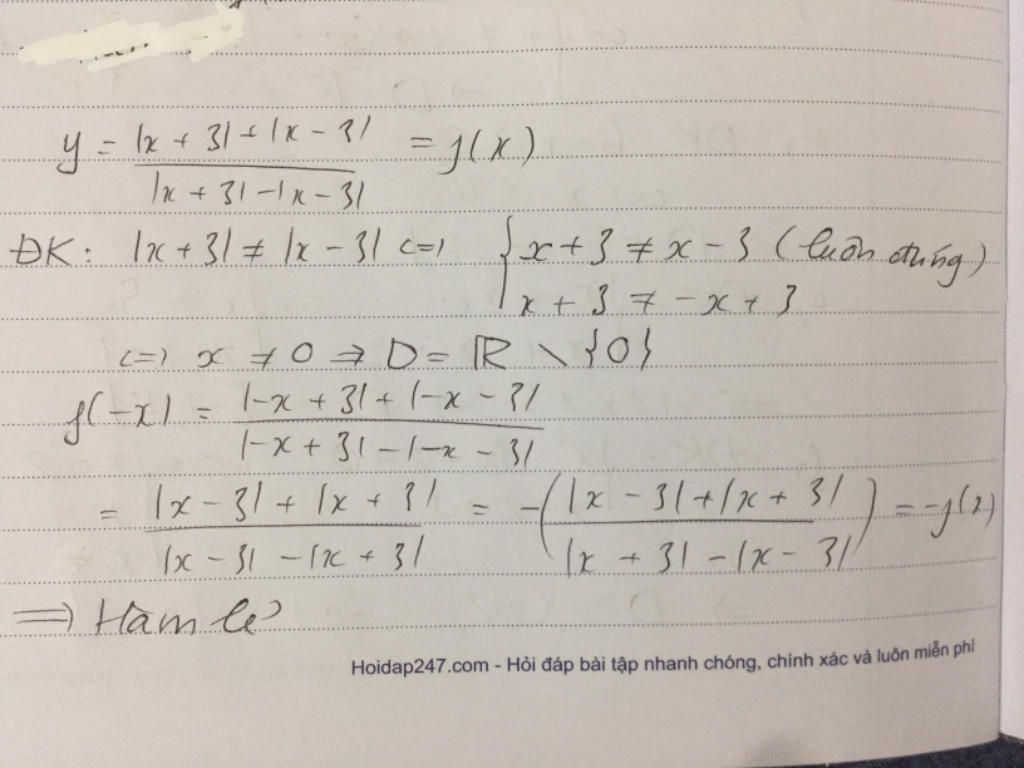 y = |x + 3| + |x - 3| / |x + 3| - |x - 3| = f(x)
ĐK: |x + 3| ≠ |x - 3| <=> { x + 3 ≠ x - 3 (luôn đúng)
x + 3 ≠ -x + 3
<=> x ≠ 0 => D = ℝ \ {0}
f(-x) = |-x + 3| + |-x - 3| / |-x + 3| - |-x - 3|
= |x - 3| + |x + 3| / |x - 3| - |x + 3| = -( |x - 3| + |x + 3| / |x + 3| - |x - 3| ) = -f(x)
=> Hàm lẻ
Hoidap247.com - Hỏi đáp bài tập nhanh chóng, chính xác và luôn miễn phí